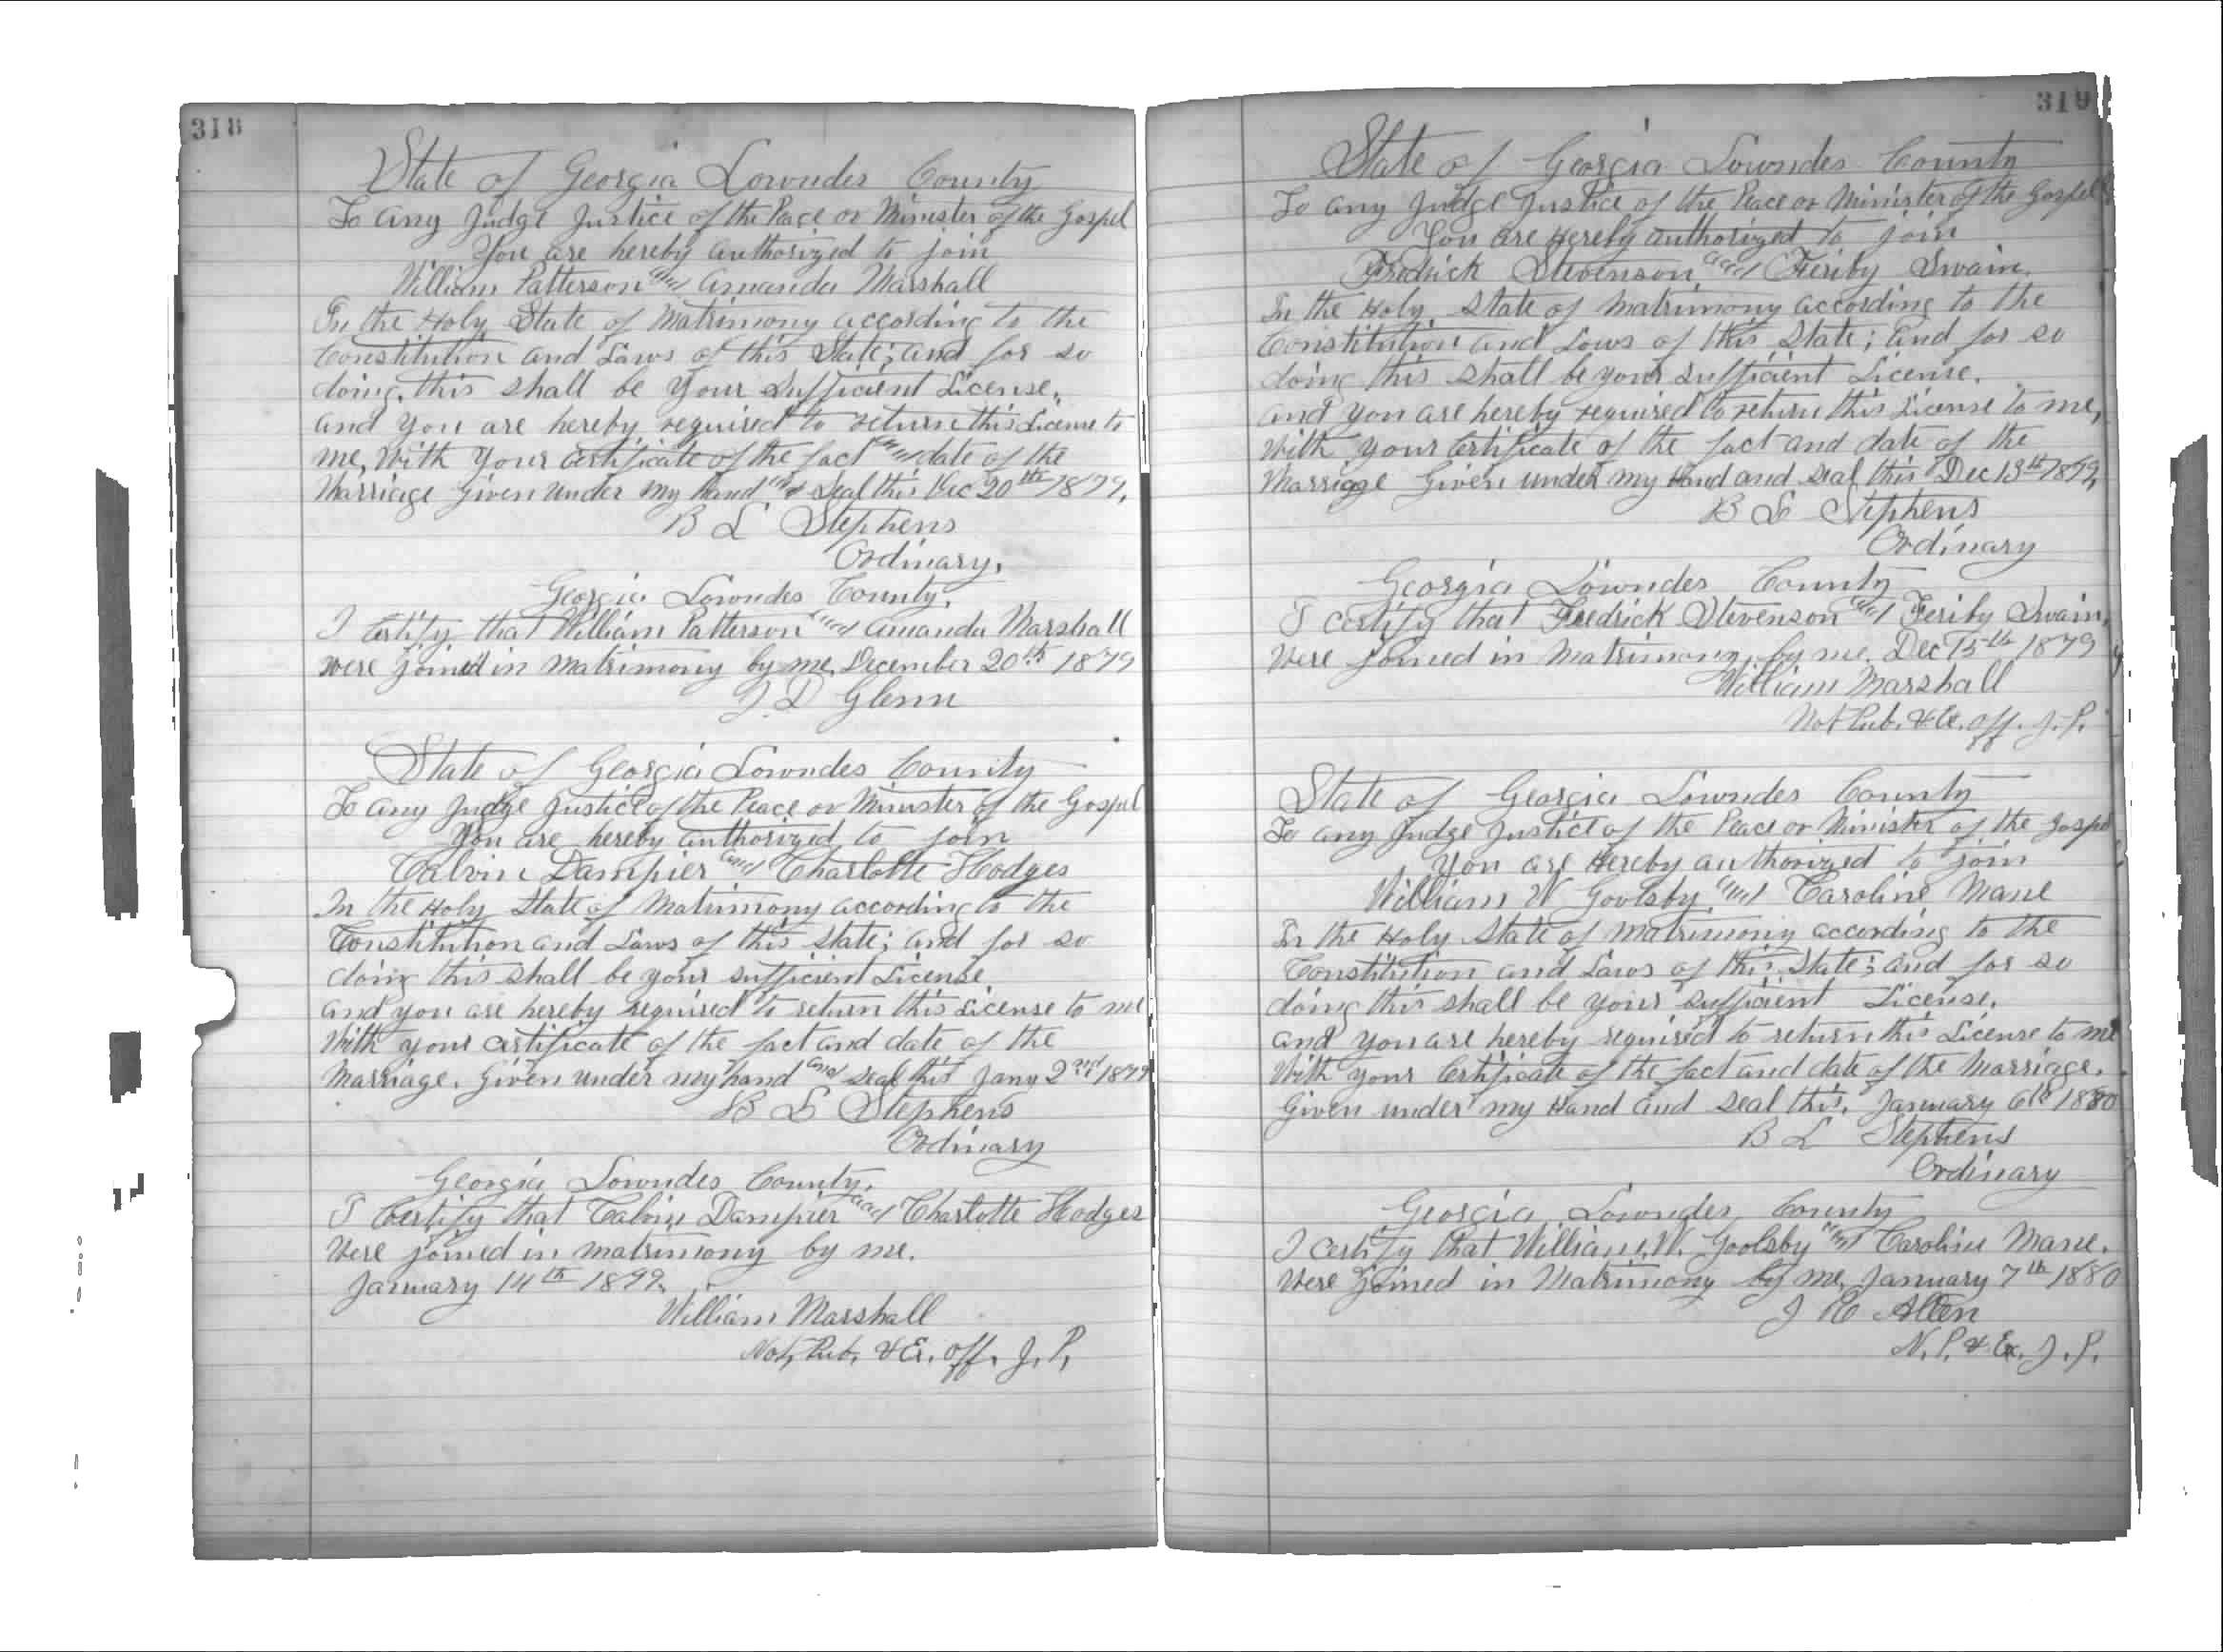 318
State of Georgia Lowndes County
To any Judge Justice of the Peace or Minister of the Gospel
You are hereby authorized to join
William Patterson and Amanda Marshall
In the Holy State of Matrimony according to the
Constitution and Laws of this State; and for so
doing, this shall be Your Sufficient License.
and You are hereby required to return this License to
me, With Your Certificate of the fact and date of the
Marriage Given under my hand and Seal this Dec 20th 1879.
B L Stephens
Ordinary.
Georgia Lowndes County.
I Certify that William Patterson and Amanda Marshall
were joined in matrimony by me, December 20th 1879
J. D Glenn
State of Georgia Lowndes County
To any Judge Justice of the Peace or Minister of the Gospel
You are hereby authorized to join
Calvin Dampier and Charlotte Hodges
In the Holy State of Matrimony according to the
Constitution and Laws of this State; and for so
doing this shall be your sufficient License
and you are hereby required to return this License to me
With your certificate of the fact and date of the
Marriage. Given under my hand and seal this Jany 2nd 1879
B L Stephens
Ordinary
Georgia Lowndes County.
I Certify that Calvin Dampier and Charlotte Hodges
Were joined in matrimony by me.
January 14th 1879.
William Marshall
Not, Pub, & Ex. off. J. P.
319
State of Georgia Lowndes County
To any Judge Justice of the Peace or Minister of the Gospel
You are Hereby authorized to join
Fredrick Stevenson and Feriby Swain.
In the Holy State of Matrimony according to the
Constitution and Laws of this State; and for so
doing this shall be your sufficient License.
and you are hereby required to return this License to me,
With Your Certificate of the fact and date of the
Marriage Given under my Hand and seal this Dec 13th 1879,
B L Stephens
Ordinary
Georgia Lowndes County
I certify that Fredrick Stevenson and Feriby Swain,
Were joined in Matrimony by me. Dec 15th 1879
William Marshall
Not Pub. & Ex. off. J. P.
State of Georgia Lowndes County
To any Judge Justice of the Peace or Minister of the Gospel
You are Hereby authorized to join
William W Goolsby and Caroline Mane
In the Holy State of Matrimony according to the
Constitution and Laws of this State; and for so
doing this shall be your sufficient License.
and you are hereby required to return this License to me
With your Certificate of the fact and date of the Marriage.
Given under my Hand and seal this, January 6th 1880
B L Stephens
Ordinary
Georgia Lowndes County
I certify that William, W. Goolsby and Caroline Mane.
Were joined in Matrimony by me, January 7th 1880
Allen
N. P. & Ex. J. P.